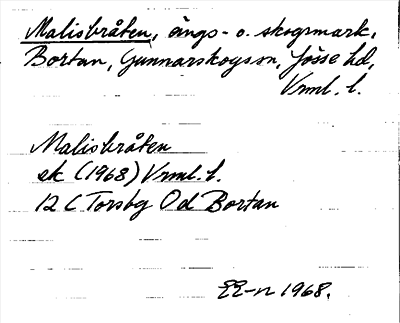 Malisbråten, ängs- o. skogsmark,
Bortan, Gunnarskogs sn, Jösse hd,
Vrml. l.
Malisbråten
ek (1968) Vrml. l.
12 C Torsby 0d Bortan
EE-n 1968.